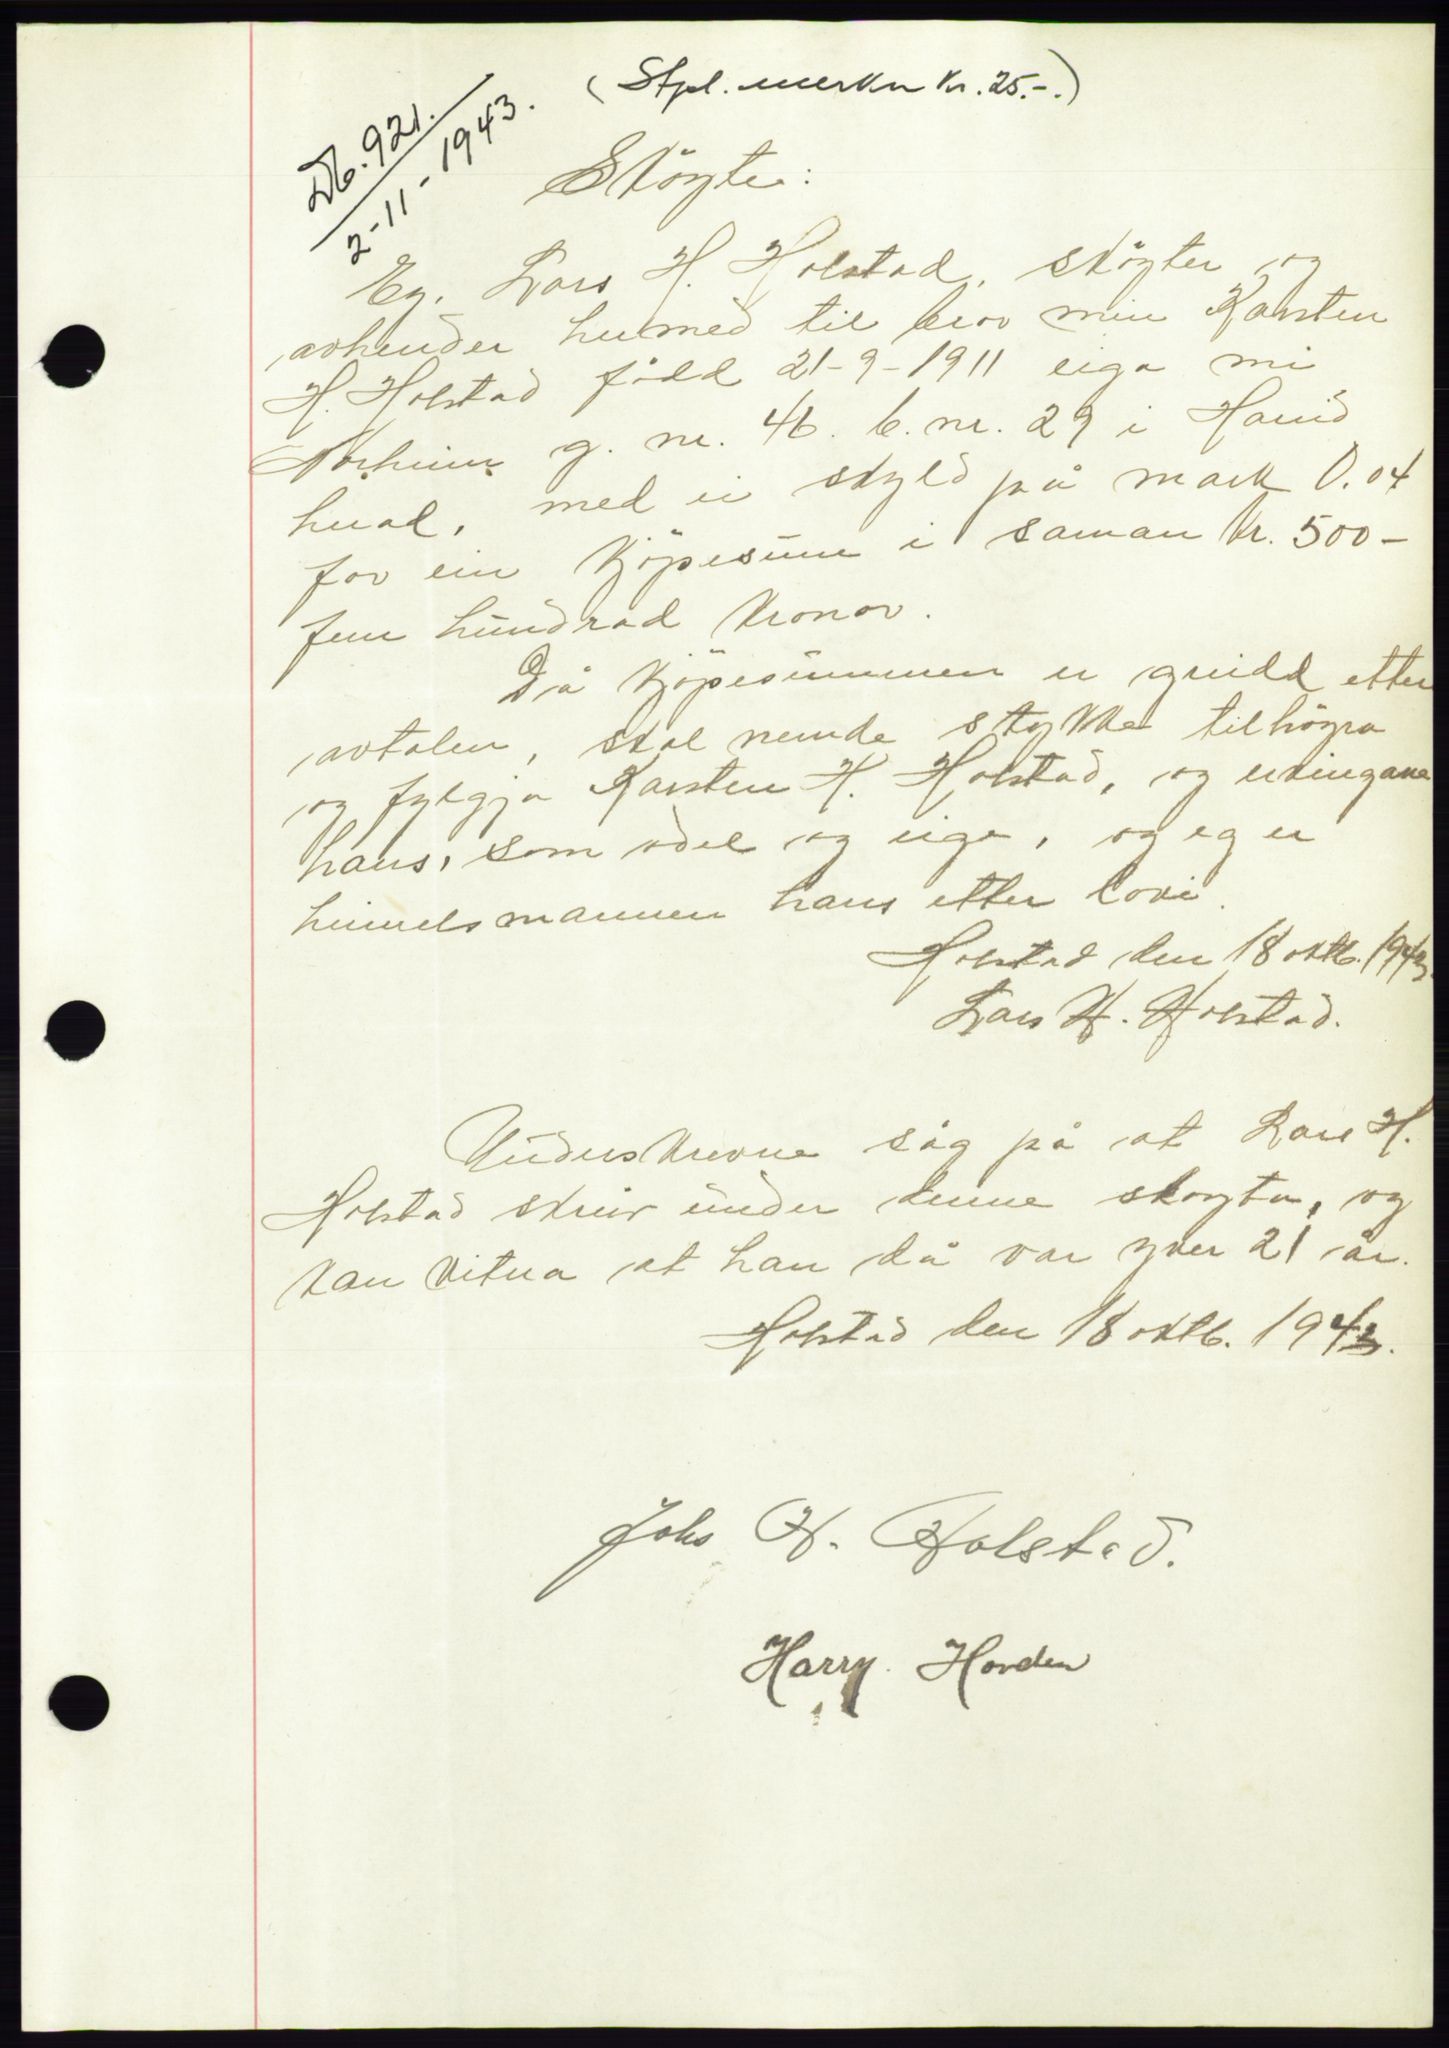 (Stpl. merker kr. 25.-.)
Db. 921.
2-11-1943.
Sköyte:
Eg, Lars H. Holstad, sköyter og
avhender hermed til bror min Karsten
H. Holstad född 21-9-1911 eiga mi
Norheim g. nr. 46. b. nr. 29 i Hareid
herad, med ei skyld på mark 0.04
for ein kjöpesum i saman kr. 500-
fem hundrad kronor.
Då kjöpesummen er greidd etter
avtalen, skal nemde stykke tilhöyra
og fylgja Karsten H. Holstad, og ervingane
hans, som odel og eige, og eg er
heimelsmannen hans etter lovi.
Holstad den 18 oktb. 1943.
Lars H. Holstad.
Underskrevne såg på at Lars H.
Holstad skreiv under denne skøyta, og
kan vitna at han då var yver 21 år.
Holstad den 18 oktb. 1943.
Johs H. Holstad.
Harry Hovden